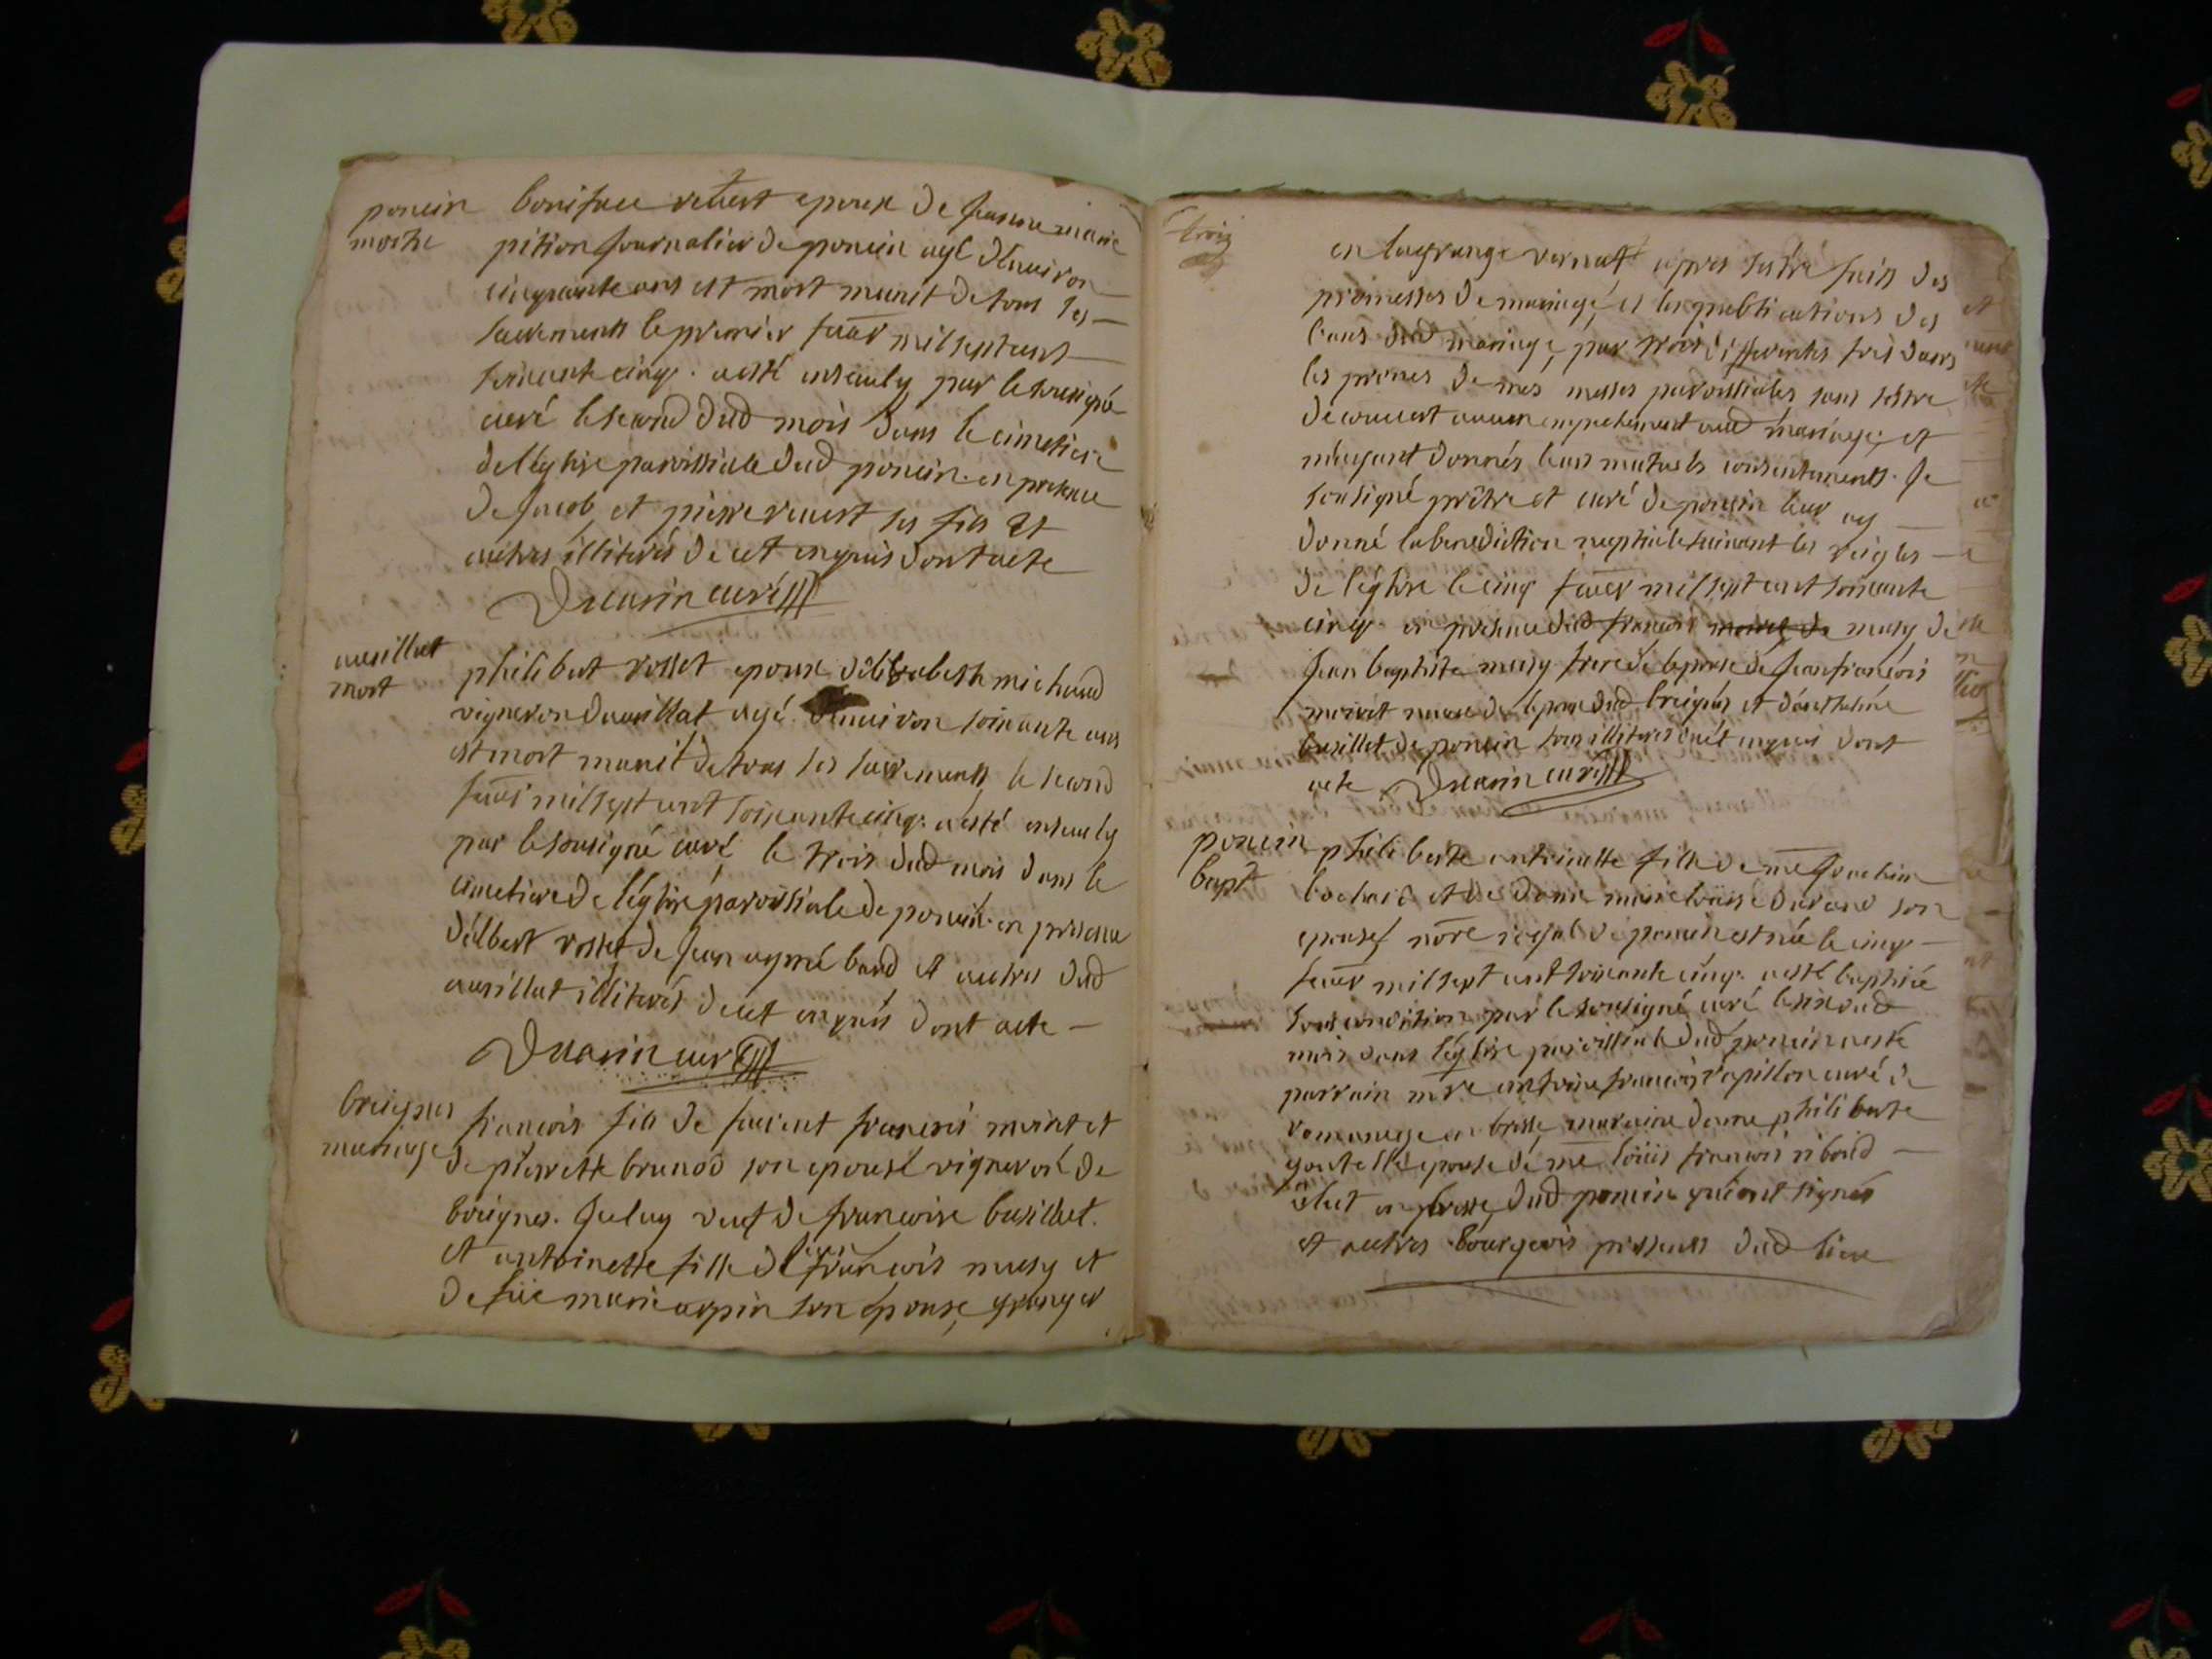 poncin
morte
boniface revert epoux de jeanne marie
pition journalier de poncin agé denviron
cinquante ans est mort munit de tous ses
sacrements le premier feuer mil sept cent
soixante cinq. a esté enseuely par le sousigné
curé le second dud mois dans le cimetiere
de léglise paroissiale dud poncin en presence
de jacob et pierre revert ses fils et
autres illiterés de cet enquis dont acte
Duarin curé
auvillat
mort
philibert rosset epoux délisabeth michaud
vigneron d'auvillat agé denuiron soixante ans
est mort munit de tous ses sacrements le second
feuer mil sept cent soixante cinq. a esté enseuely
par le sousigné curé le trois dud mois dans le
cimetiere de léglise paroissiale de poncin en presence
dalbert rosset de jean aymé baud et autres dud
auvillat illiterés de cet enquis dont acte
Duarin curé
breignes
mariage
françois fils de françois moiret et
de pierrette brunod son epouse vigneron de
breignes. Iceluy veuf de françoise busillet.
et antoinette fille de jean françois musy et
de marie arpin son epouse, granger
trois
en lagrange vernat apres sestre faits des
promesses de mariage, et les publications des
bans dud mariage, par trois differentes fois dans
les prones de mes messes paroissiales sans sestre
decouvert aucun empechement aud mariage, et
m'ayant donnés leurs mutuels consentements. Je
sousigné prêtre et curé de poncin leur ay
donné la benediction nuptiale suivant les reigles
de léglise le cinq feuer mil sept cent soixante
cinq. en presence dud françois musy de
jean baptiste musy frere de lepouse de jean françois
moiret de lepoux dud breignes et
busillet de poncin tous illiterés enquis dont
acte Duarin curé
poncin
bapt
philiberte antoinette fille de me joachim
bochard et de dame marie loüise durand son
epouse, nore royal de poncin est née le cinq
feuer mil sept cent soixante cinq. a esté baptisée
sous condition par le sousigné curé le six dud
mois dans léglise paroissiale dud poncin a esté
parrain mre antoine françois papillon curé de
romanege en bresse, maraine dame philiberte
epouse de me loüis françois riboud
élut en bresse, dud poncin qui ont signés
et autres bourgeois presents dud lieu